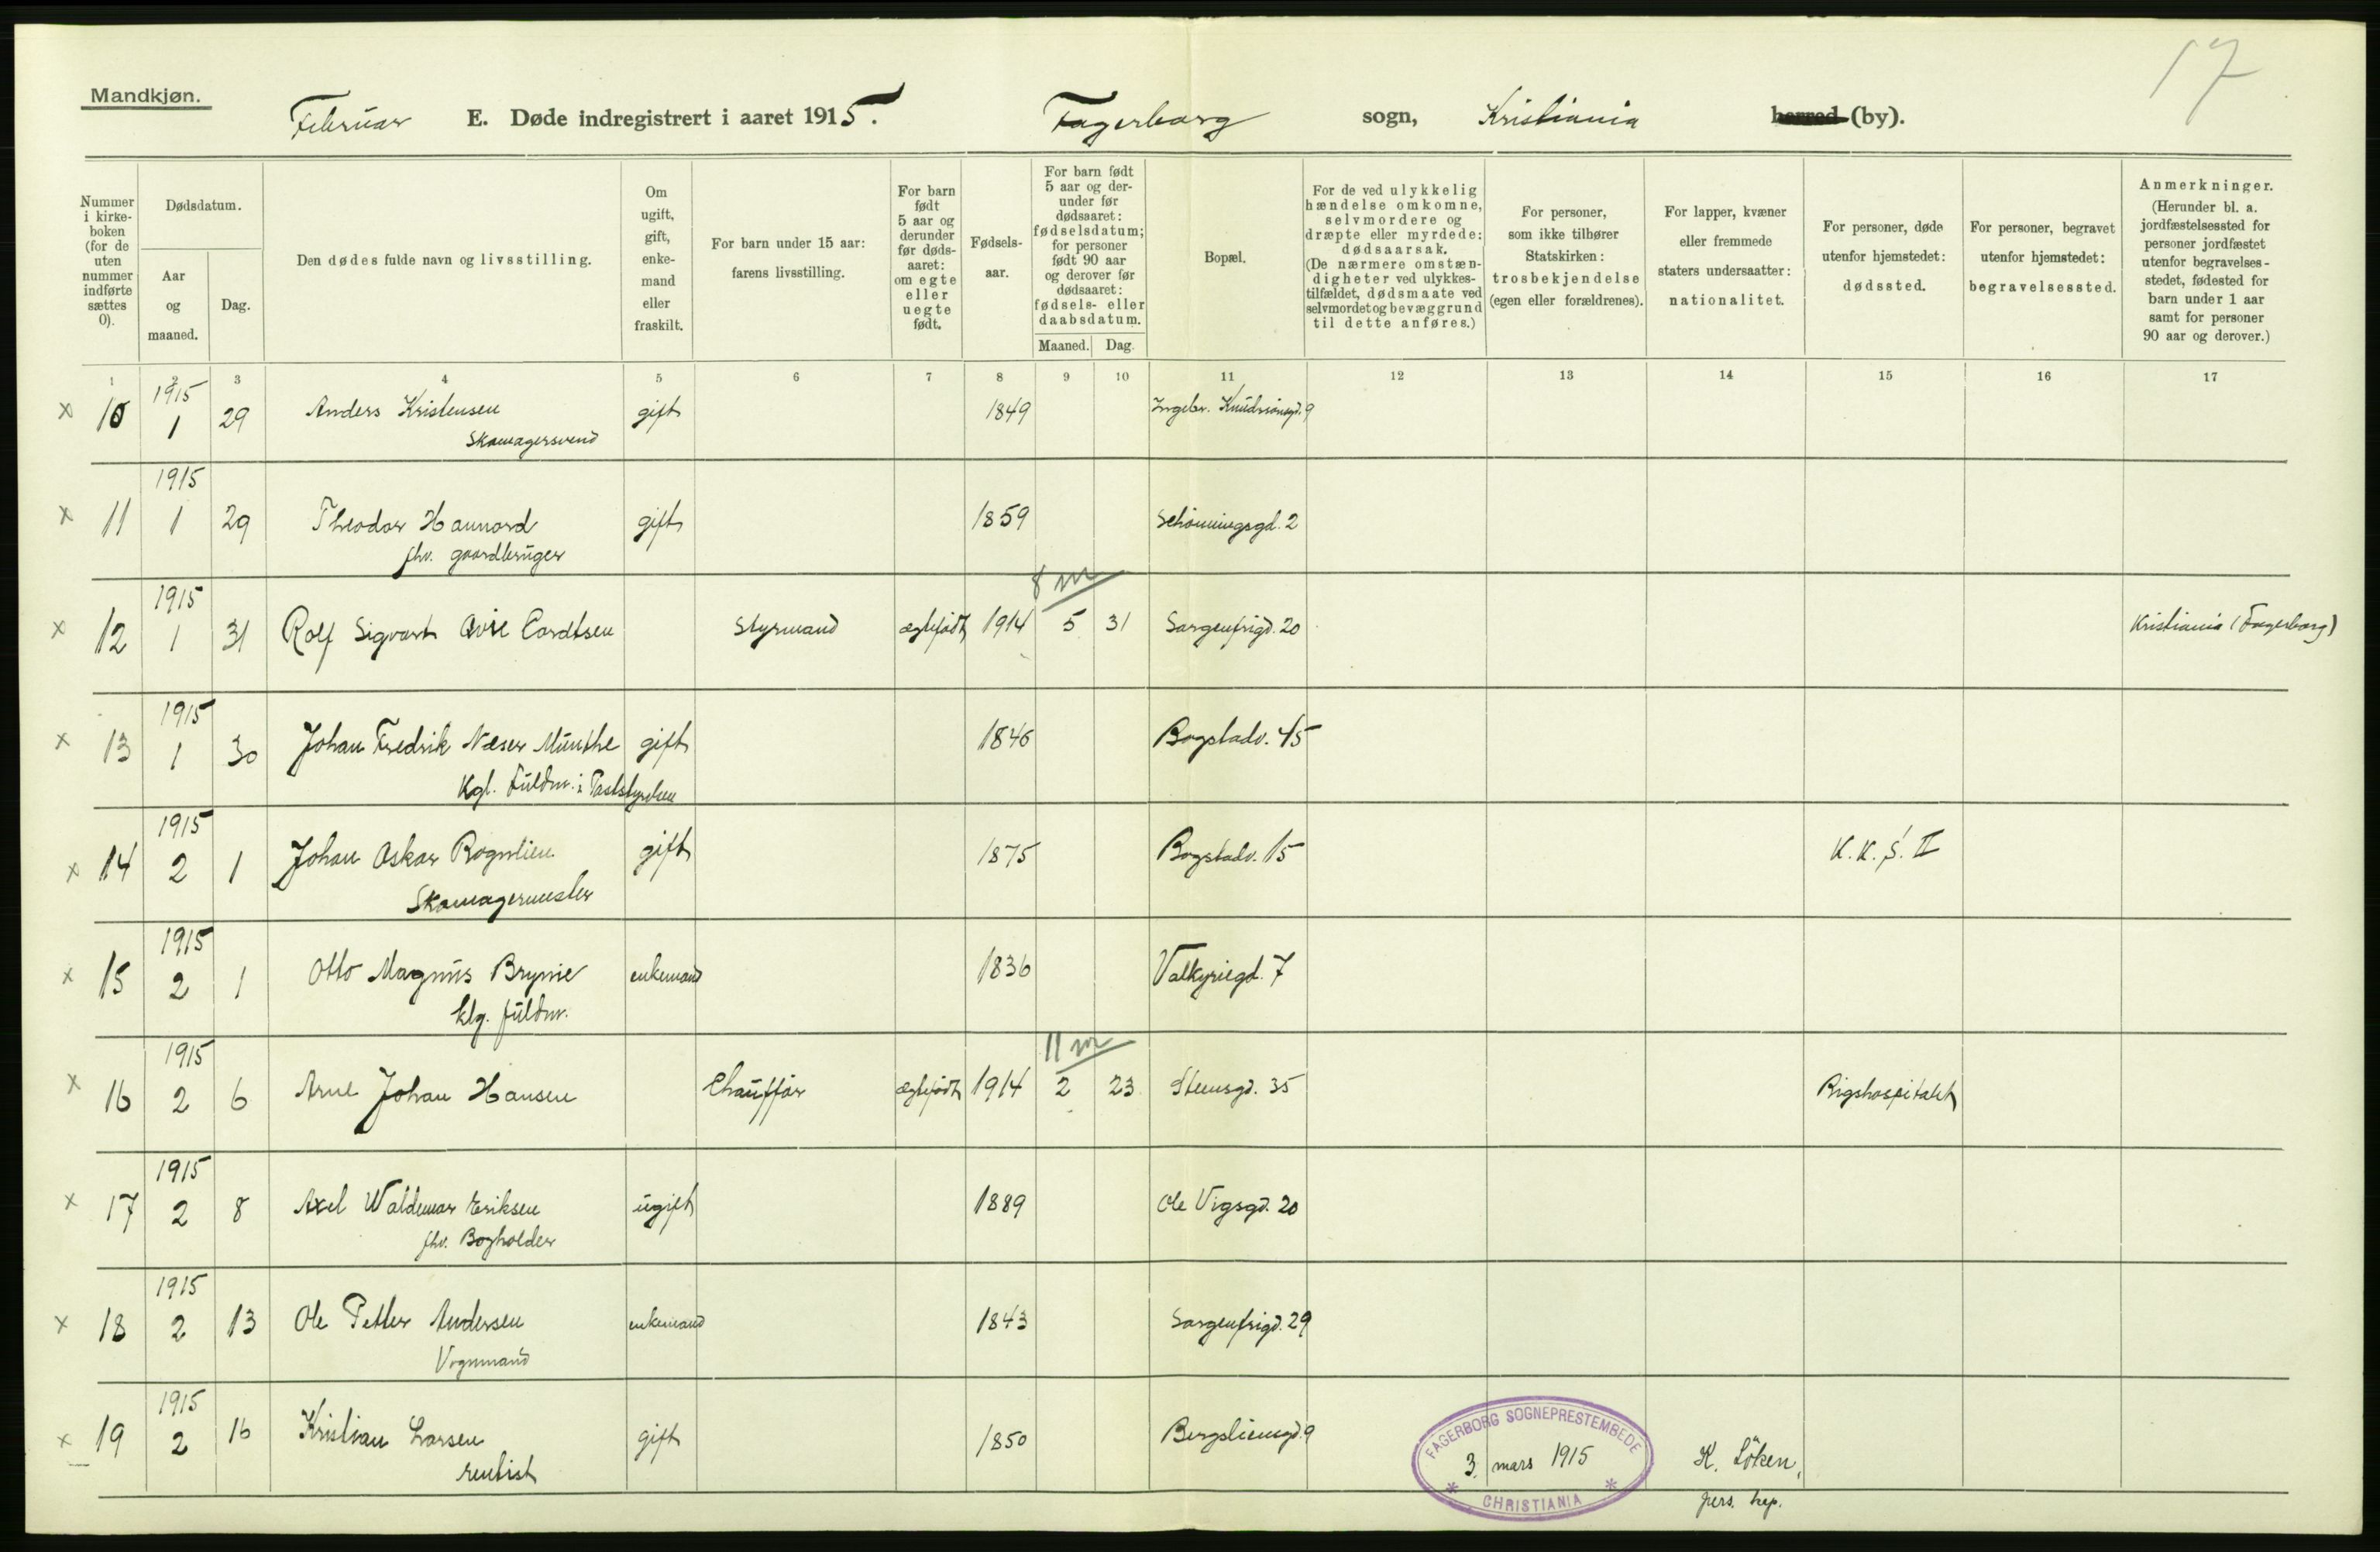 17
Mandkjøn.
Februar E. Døde indregistrert i aaret 1915. Fagerborg sogn, Kristiania herred (by).
Nummer i kirkeboken (for de uten nummer indførte sættes 0).
Dødsdatum.
Aar og maaned.
Dag.
Den dødes fulde navn og livsstilling.
Om ugift, gift, enkemand eller fraskilt.
For barn under 15 aar: farens livsstilling.
For barn født 5 aar og derunder før dødsaaret: om egte eller uegte født.
Fødselsaar.
For barn født 5 aar og derunder før dødsaaret: fødselsdatum; for personer født 90 aar og derover før dødsaaret: fødsels- eller daabsdatum.
Maaned. Dag.
Bopæl.
For de ved ulykkelig hændelse omkomne, selvmordere og dræpte eller myrdede: dødsaarsak. (De nærmere omstændigheter ved ulykkestilfældet, dødsmaate ved selvmordet og bevæggrund til dette anføres.)
For personer, som ikke tilhører Statskirken: trosbekjendelse (egen eller forældrenes).
For lapper, kvæner eller fremmede staters undersaatter: nationalitet.
For personer, døde utenfor hjemstedet: dødssted.
For personer, begravet utenfor hjemstedet: begravelsessted.
Anmerkninger. (Herunder bl. a. jordfæstelsessted for personer jordfæstet utenfor begravelsesstedet, fødested for barn under 1 aar samt for personer 90 aar og derover.)
1 2 3 4 5 6 7 8 9 10 11 12 13 14 15 16 17
1915
x 10 1 29 Anders Kristensen gift 1849 Ingebr. Knudsønsgd. 9
Skomagersvend
1915
x 11 1 29 Theodor Hannord gift 1859 Schøningsgd. 2
fhv. gaardbruger
8 m
1915
x 12 1 31 Rolf Sigvart Cordtsen styrmand egtefødt 1914 5 31 Sorgenfrigd. 20 Kristiania (Fagerborg)
1915
x 13 1 30 Johan Fredrik Neser Munthe gift 1846 Bogstadv. 45
Kgl. fuldm. i Poststyrelsen
1915
x 14 2 1 Johan Oskar Rognlien gift 1875 Bogstadv. 15 K. K. S. II
Skomagermester
1915
x 15 2 1 Otto Magnus Brynie enkemand 1836 Valkyriegd. 7
fuldm.
11 m
1915
x 16 2 6 Arne Johan Hansen Chauffør egtefødt 1914 2 23 Stensgd. 35 Rigshospitalet
1915
x 17 2 8 Axel Waldemar Eriksen ugift 1889 Ole Vigsgd. 20
fhv. Bogholder
1915
x 18 2 13 Ole Petter Andersen enkemand 1843 Sorgenfrigd. 29
Vognmand
1915
x 19 2 16 Kristian Larsen gift 1850 Bergsliensgd. 9
rentist
FAGERBORG SOGNEPRESTEMBEDE
3. mars 1915
CHRISTIANIA
K. Löken,
pers. kap.